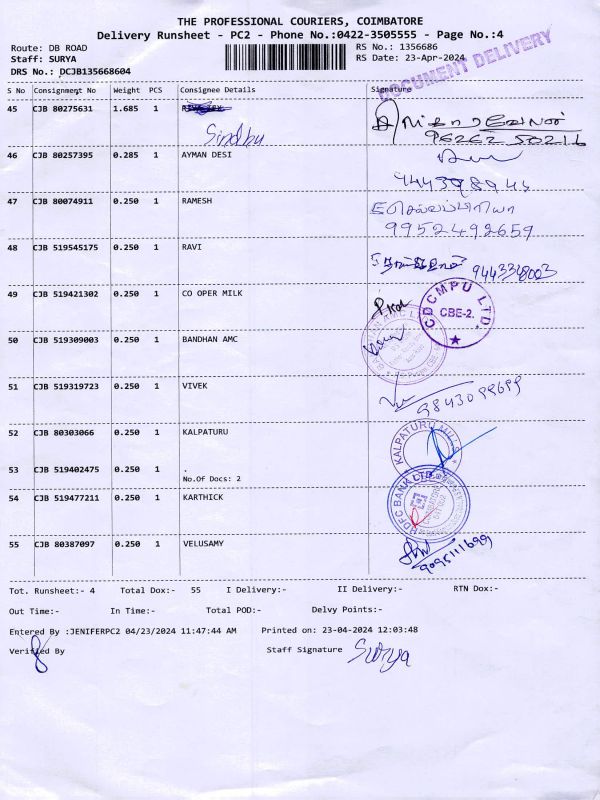 THE PROFESSIONAL COURIERS, COIMBATORE
Delivery Runsheet - PC2 - Phone No.:0422-3505555 - Page No.:4
Route: DB ROAD
RS No.: 1356686
Staff: SURYA
RS Date: 23-Apr-2024
DRS No.: DCJB135668604
DOCUMENT DELIVERY
S No Consignment No Weight PCS Consignee Details Signature
45 CJB 80275631 1.685 1
Sindhu
96262 50216
46 CJB 80257395 0.285 1 AYMAN DESI
47 CJB 80074911 0.250 1 RAMESH
9952492659
48 CJB 519545175 0.250 1 RAVI
9443348003
49 CJB 519421302 0.250 1 CO OPER MILK
CDCMPU LTD
CBE-2.
50 CJB 519309003 0.250 1 BANDHAN AMC
51 CJB 519319723 0.250 1 VIVEK
9843099699
52 CJB 80303066 0.250 1 KALPATURU
KALPATURU
53 CJB 519402475 0.250 1 .
No.Of Docs: 2
54 CJB 519477211 0.250 1 KARTHICK
HDFC BANK LTD
55 CJB 80387097 0.250 1 VELUSAMY
Tot. Runsheet:- 4 Total Dox:- 55 I Delivery:- II Delivery:- RTN Dox:-
Out Time:- In Time:- Total POD:- Delvy Points:-
Entered By :JENIFERPC2 04/23/2024 11:47:44 AM Printed on: 23-04-2024 12:03:48
Verified By Staff Signature Surya